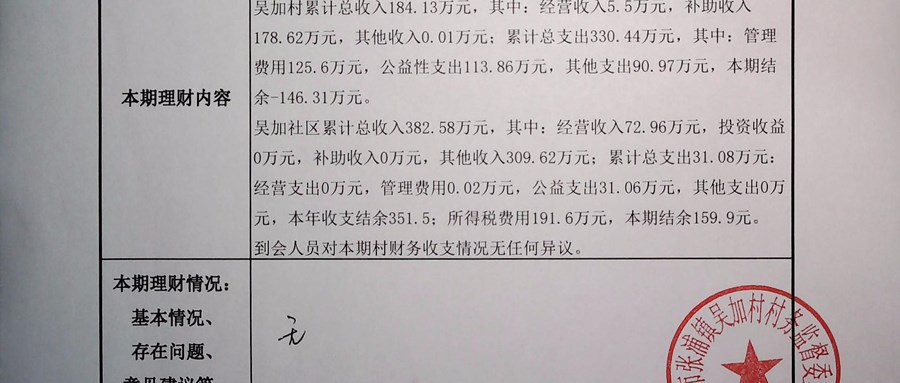 吴加村累计总收入184.13万元，其中：经营收入5.5万元，补助收入
178.62万元，其他收入0.01万元；累计总支出330.44万元，其中：管理
费用125.6万元，公益性支出113.86万元，其他支出90.97万元，本期结
余-146.31万元。
本期理财内容
吴加社区累计总收入382.58万元，其中：经营收入72.96万元，投资收益
0万元，补助收入0万元，其他收入309.62万元；累计总支出31.08万元：
经营支出0万元，管理费用0.02万元，公益支出31.06万元，其他支出0万
元，本年收支结余351.5；所得税费用191.6万元，本期结余159.9元。
到会人员对本期村财务收支情况无任何异议。
本期理财情况：
基本情况、
存在问题、
意见建议等
无
市张浦镇吴加村村务监督委